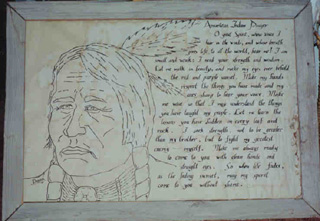 American Indian Prayer
O great Spirit, whose voice I
hear in the winds, and whose breath
gives life to all the world, hear me! I am
small and weak, I need your strength and wisdom.
Let me walk in beauty, and make my eyes ever behold
the red and purple sunset. Make my hands
respect the things you have made and my
ears sharp to hear your voice. Make
me wise so that I may understand the things
you have taught my people. Let me learn the
lessons you have hidden in every leaf and
rock. I seek strength not to be greater
than my brother, but to fight my greatest
enemy myself. Make me always ready
to come to you with clean hands and
straight eyes. So when life fades,
as the fading sunset, may my spirit
come to you without shame.